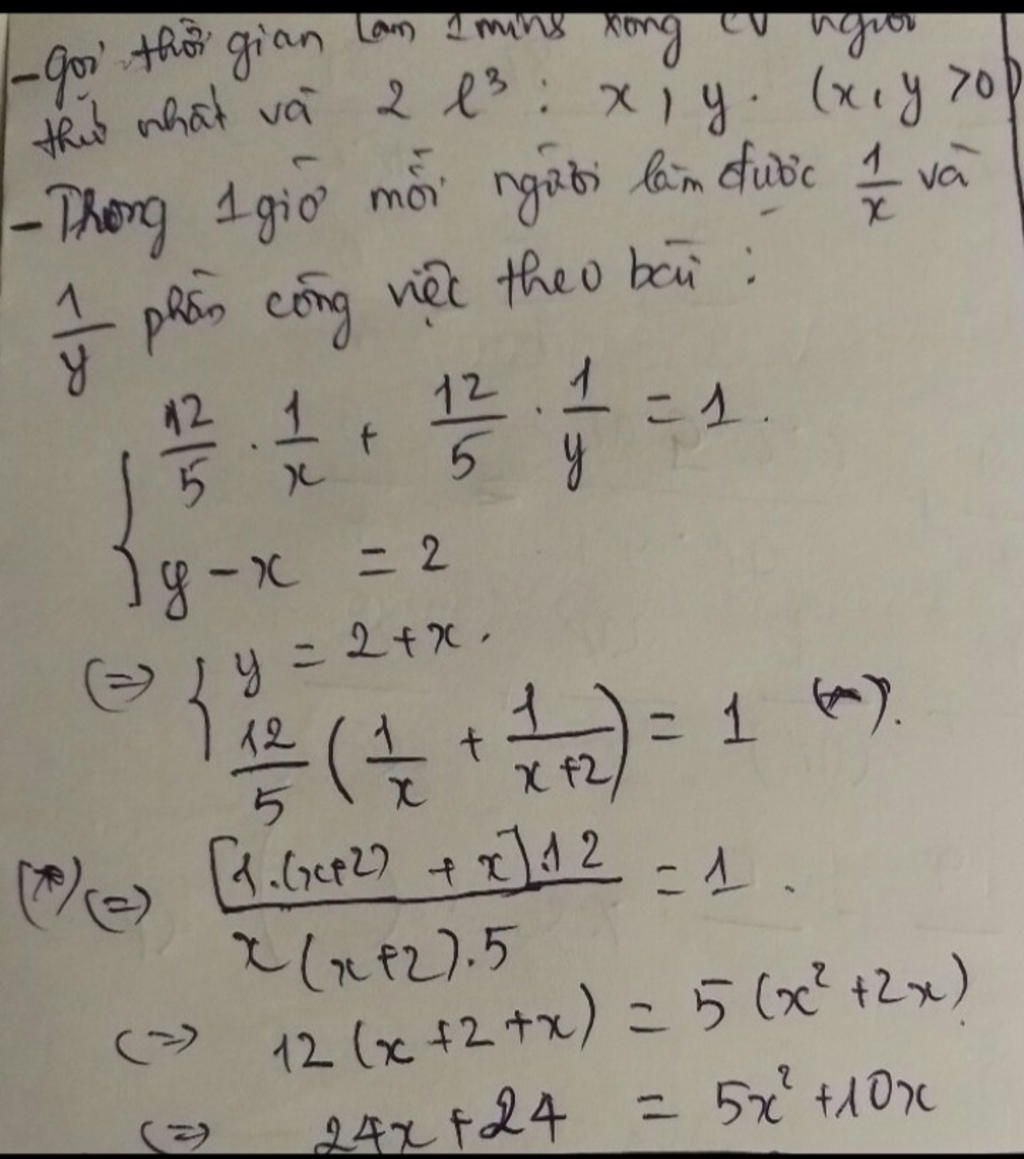 - Gọi thời gian làm 1 mình xong cv người
thứ nhất và 2 l³ : x, y. (x, y > 0)
- Trong 1 giờ mỗi người làm được 1/x và
1/y phần công việc theo bài :
{ 12/5 . 1/x + 12/5 . 1/y = 1.
y - x = 2
(=> { y = 2 + x.
12/5 (1/x + 1/(x+2)) = 1 (*).
(*) (=> [1.(x+2) + x].12 / x(x+2).5 = 1.
(=> 12 (x + 2 + x) = 5 (x² + 2x)
(=> 24x + 24 = 5x² + 10x